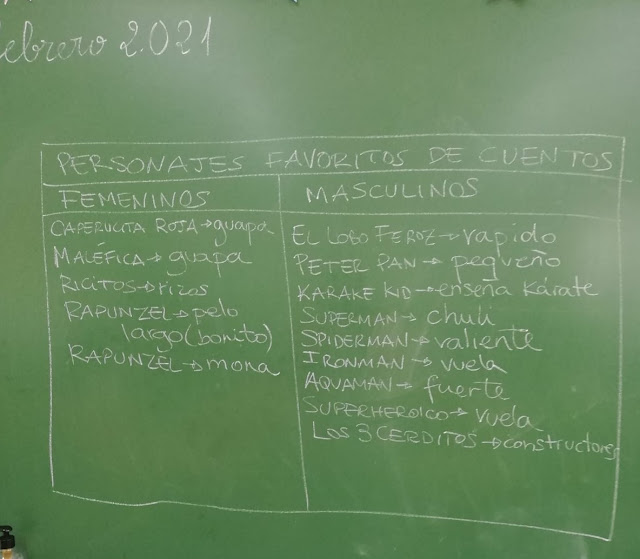 febrero 2.021
PERSONAJES FAVORITOS DE CUENTOS
FEMENINOS
CAPERUCITA ROJA→guapa
MALÉFICA→guapa
RICITOS→rizos
RAPUNZEL→pelo
largo(bonito)
RAPUNZEL→mona
MASCULINOS
EL LOBO FEROZ→rapido
PETER PAN→pequeño
KARAKE KID→enseña kárate
SUPERMAN→chuli
SPIDERMAN→valiente
IRONMAN→vuela
AQUAMAN→fuerte
SUPERHEROICO→vuela
LOS 3 CERDITOS→constructores